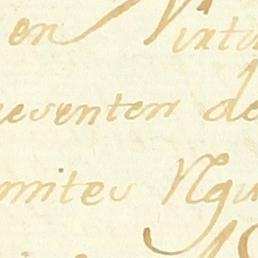 en Virtu
esenten de
mites Ngu